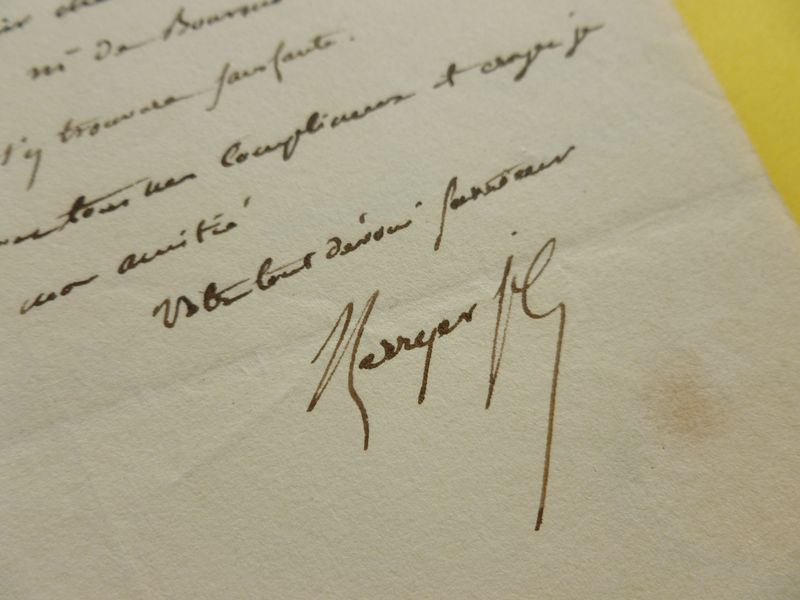 mr de Bourm
s'y trouvera sans faute.
tous mes compliments et croyez je
mon amitié
Votre tout dévoué serviteur
Berryer fils